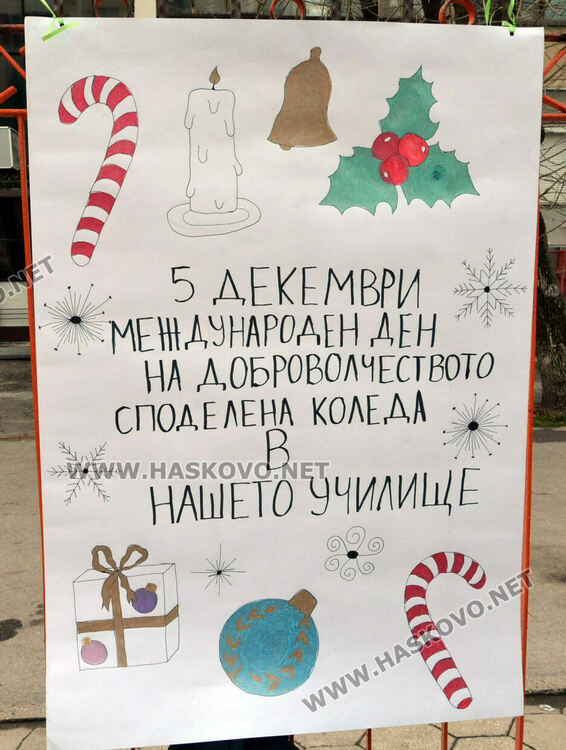 5 ДЕКЕМВРИ
МЕЖДУНАРОДЕН ДЕН
НА ДОБРОВОЛЧЕСТВОТО
СПОДЕЛЕНА КОЛЕДА
В
НАШЕТО УЧИЛИЩЕ
WWW.HASKOVO.NET
WWW.HASKOVO.NET